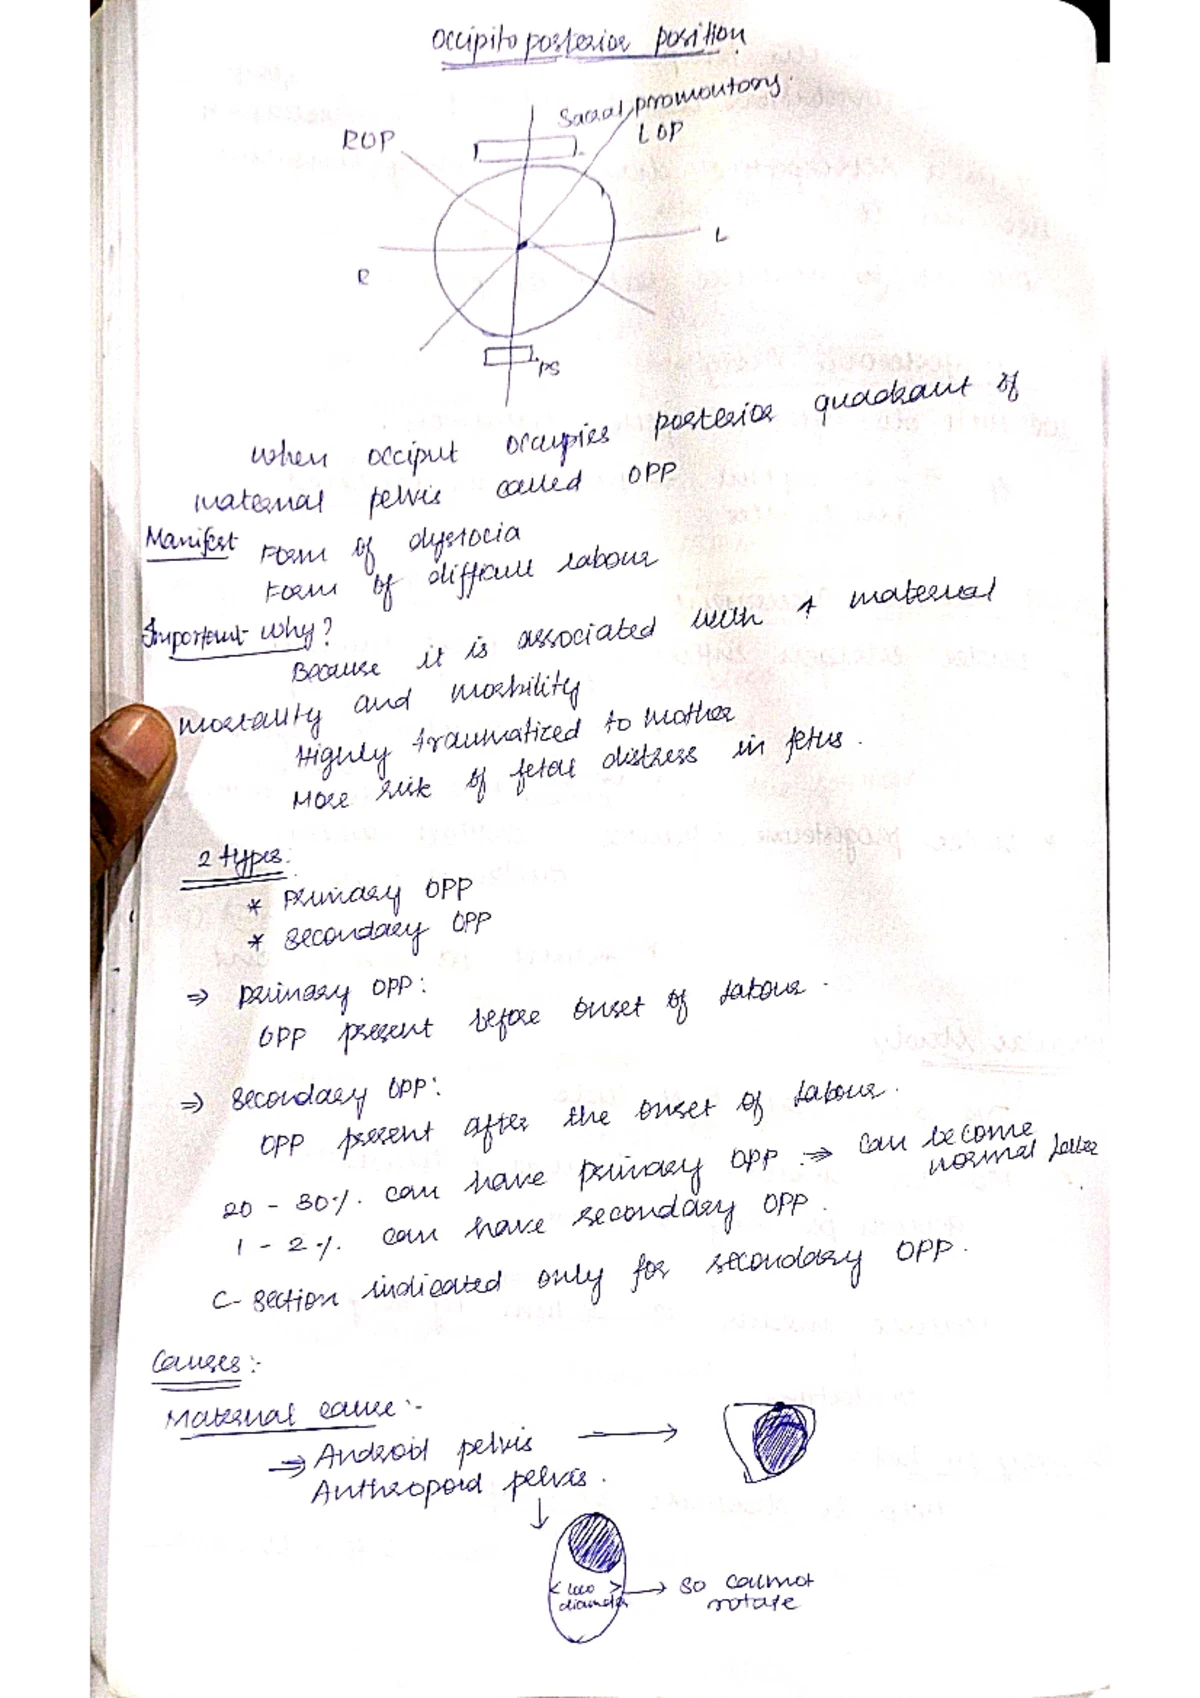 Occipito posterior position
Sacral promontory.
ROP
LOP
R
L
PS
When occiput occupies posterior quadrant of
maternal pelvis called OPP
Manifest
Form of dystocia
Form of difficult labour
Important why?
Because it is associated with ↑ maternal
mortality and morbility
Highly traumatized to mother
More risk of fetal distress in fetus.
2 types:
* Primary OPP
* Secondary OPP
⇒ Primary OPP:
OPP present before onset of labour.
⇒ Secondary OPP:
OPP present after the onset of labour.
20 - 30%. can have primary OPP. ⇒ can become
normal later
1 - 2%. can have secondary OPP.
C-section indicated only for secondary OPP.
Causes:-
Maternal cause:-
⇒ Android pelvis →
Anthropoid pelvis.
↓
< >
diameter
→ so cannot
rotate